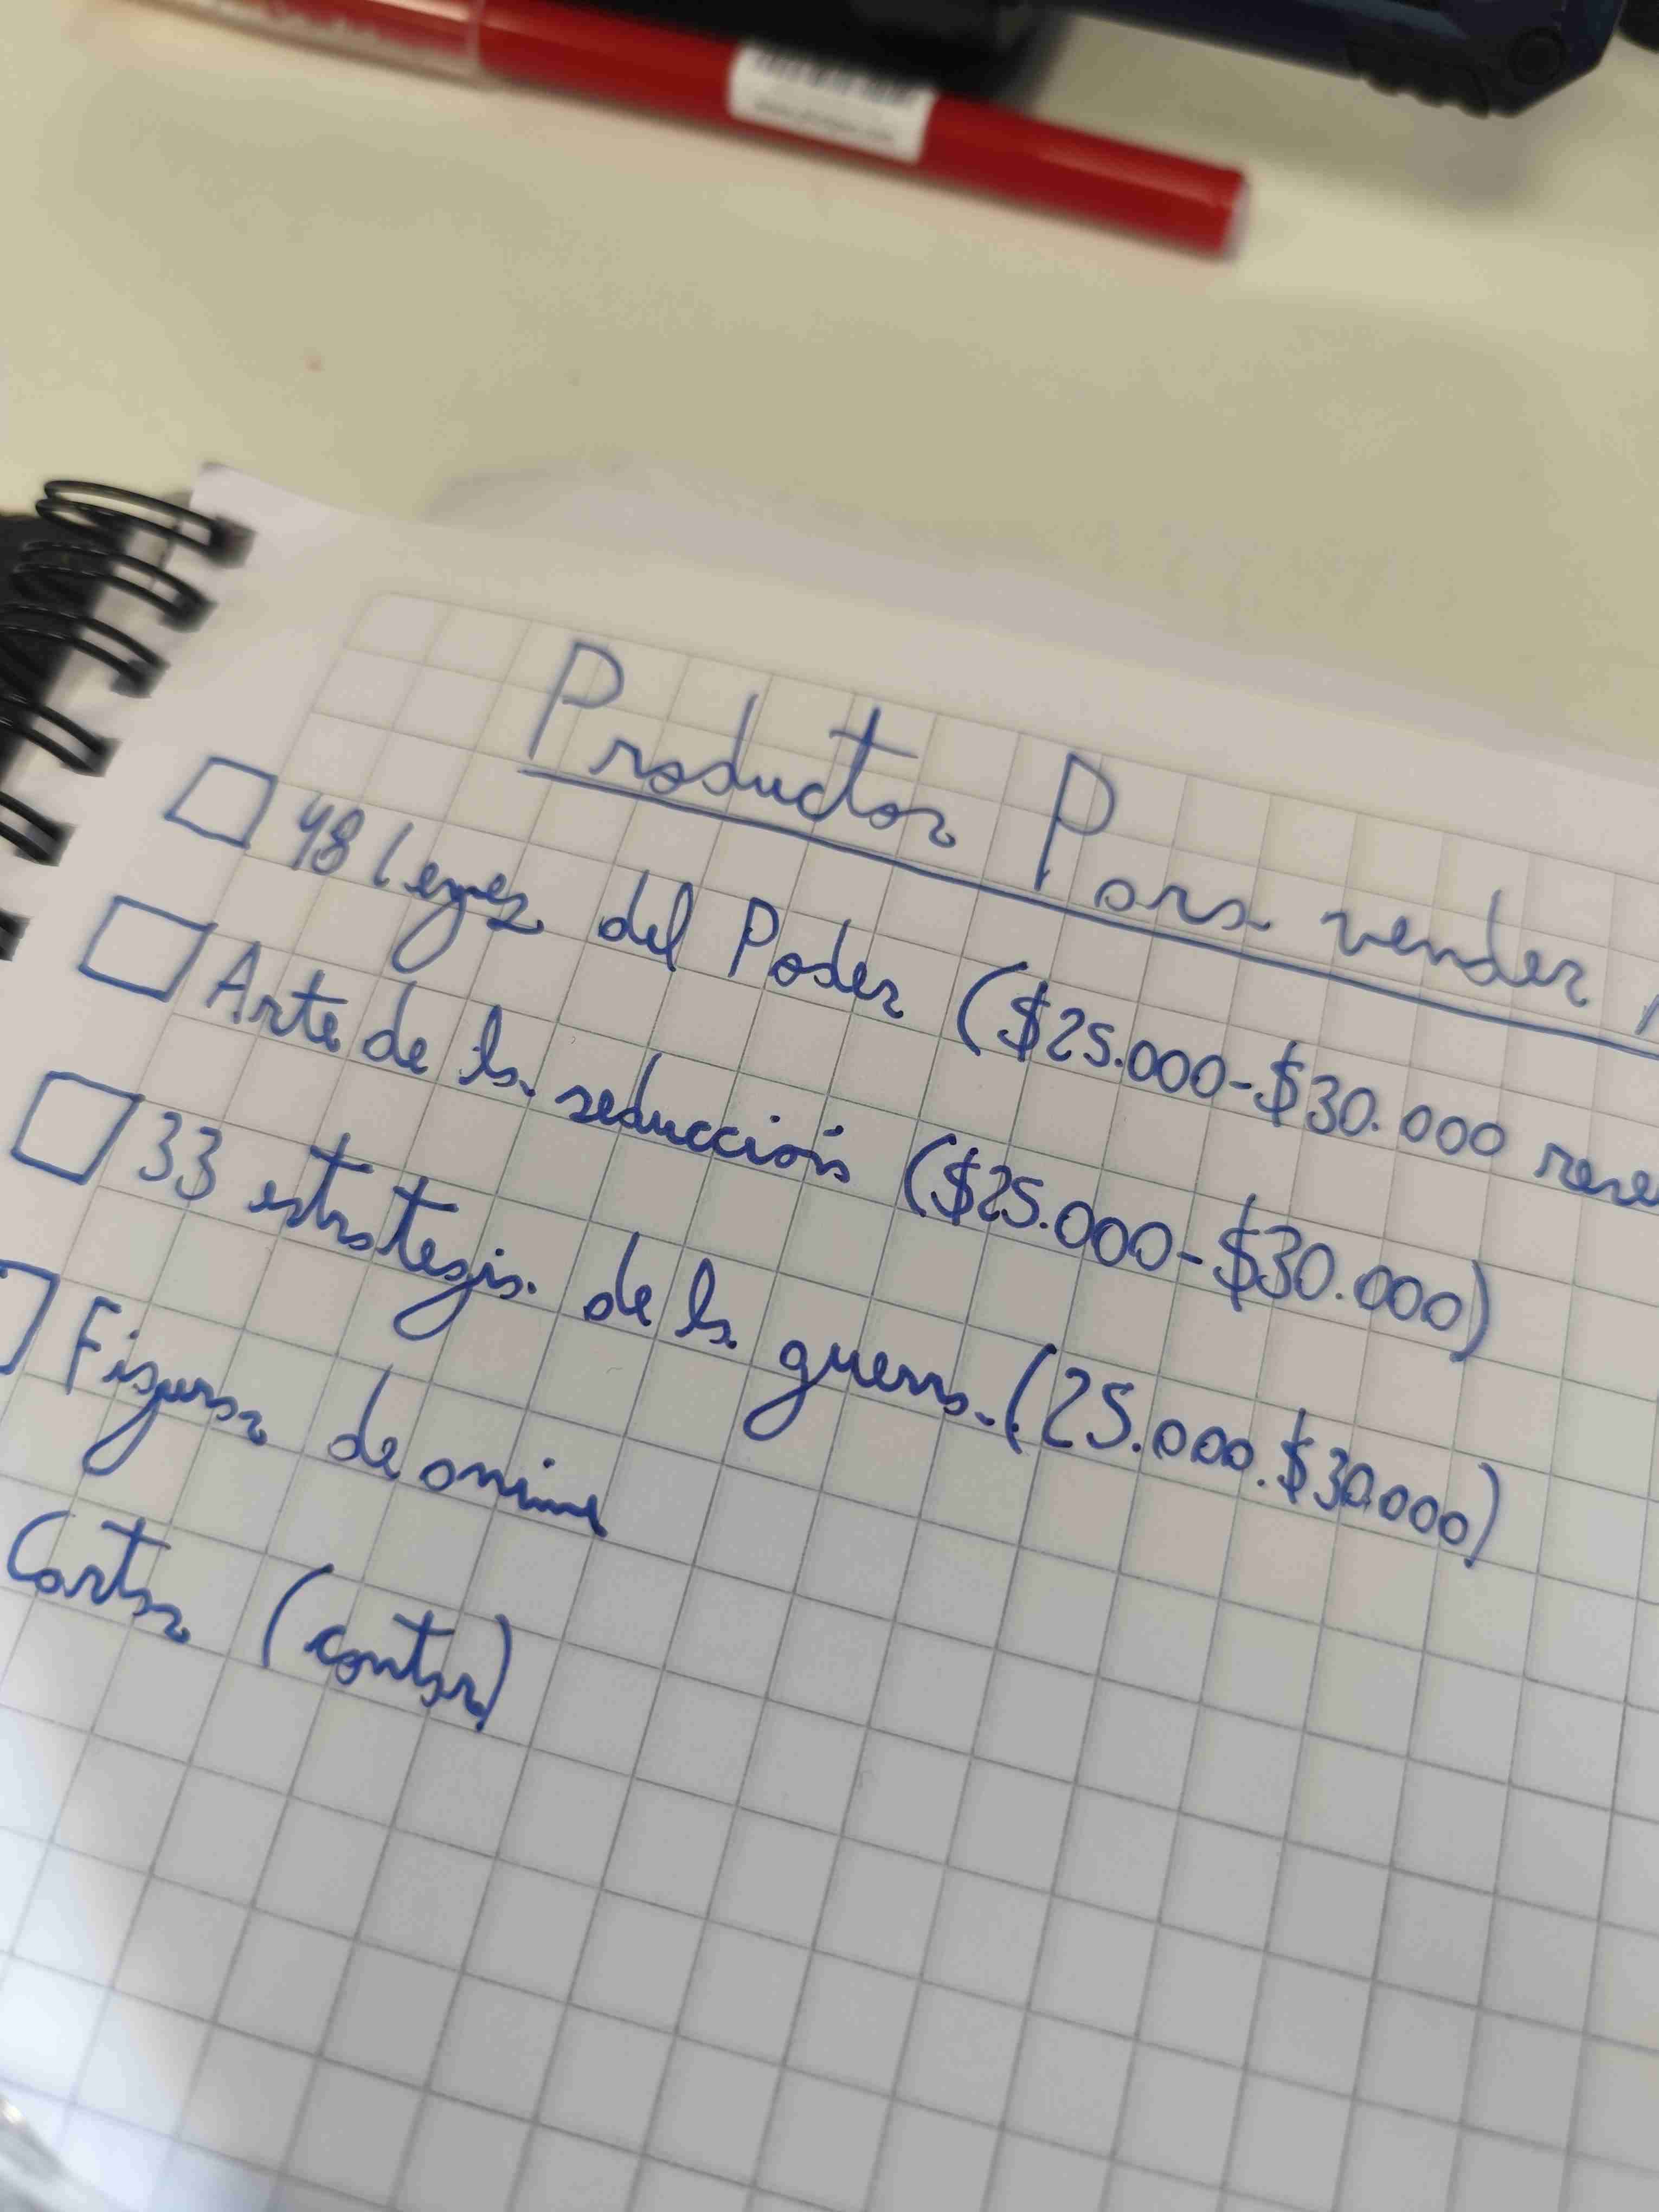 Productos Para vender
48 leyes del Poder ($25.000-$30.000 rese
Arte de la seducción ($25.000-$30.000)
33 estrategia de la guerra (25.000.$30.000)
Figuras de anime
Cartas (contar)